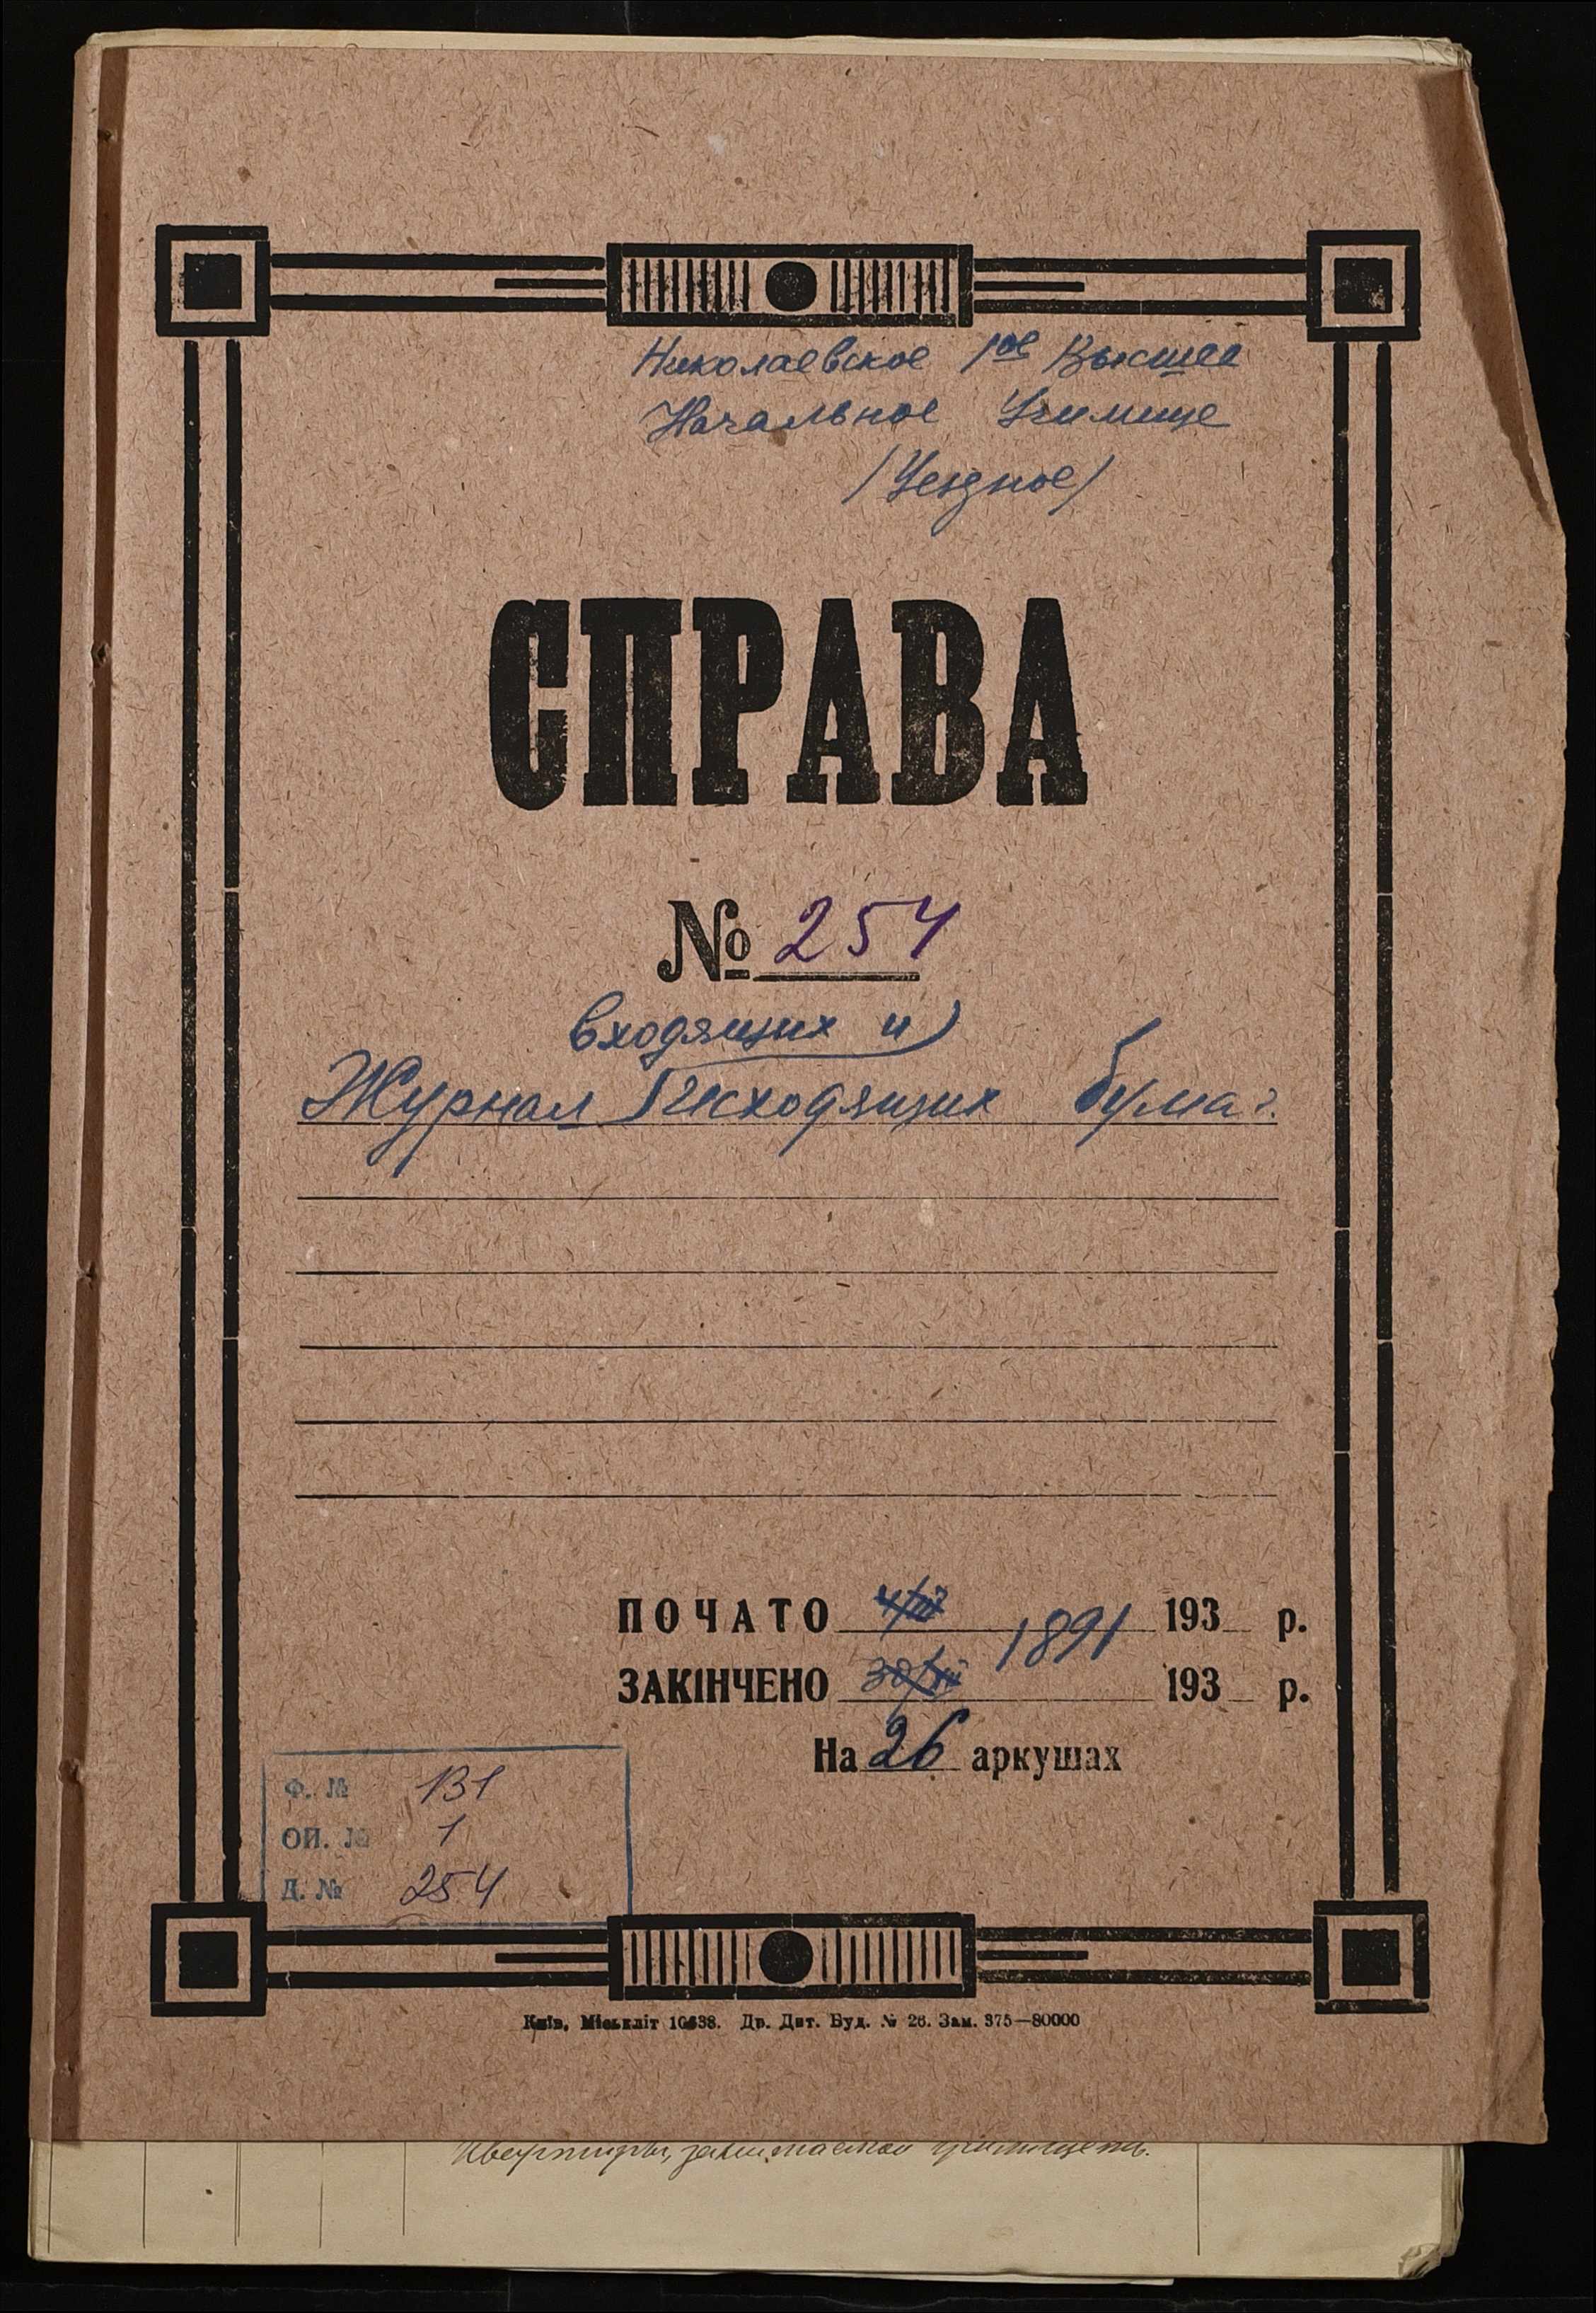 Николаевское 1ое Высшее
Начальное Училище
/Уездное/
СПРАВА
№ 254
входящих и
Журнал исходящих бумаг.
ПОЧАТО 4/III 1891 193 р.
ЗАКІНЧЕНО 193 р.
На 26 аркушах
Ф. № 131
ОП. № 1
Д. № 254
Київ, Міськліт 10638. Др. Дит. Буд. № 26. Зам. 375—80000
квартиры, занимаемой училищем.